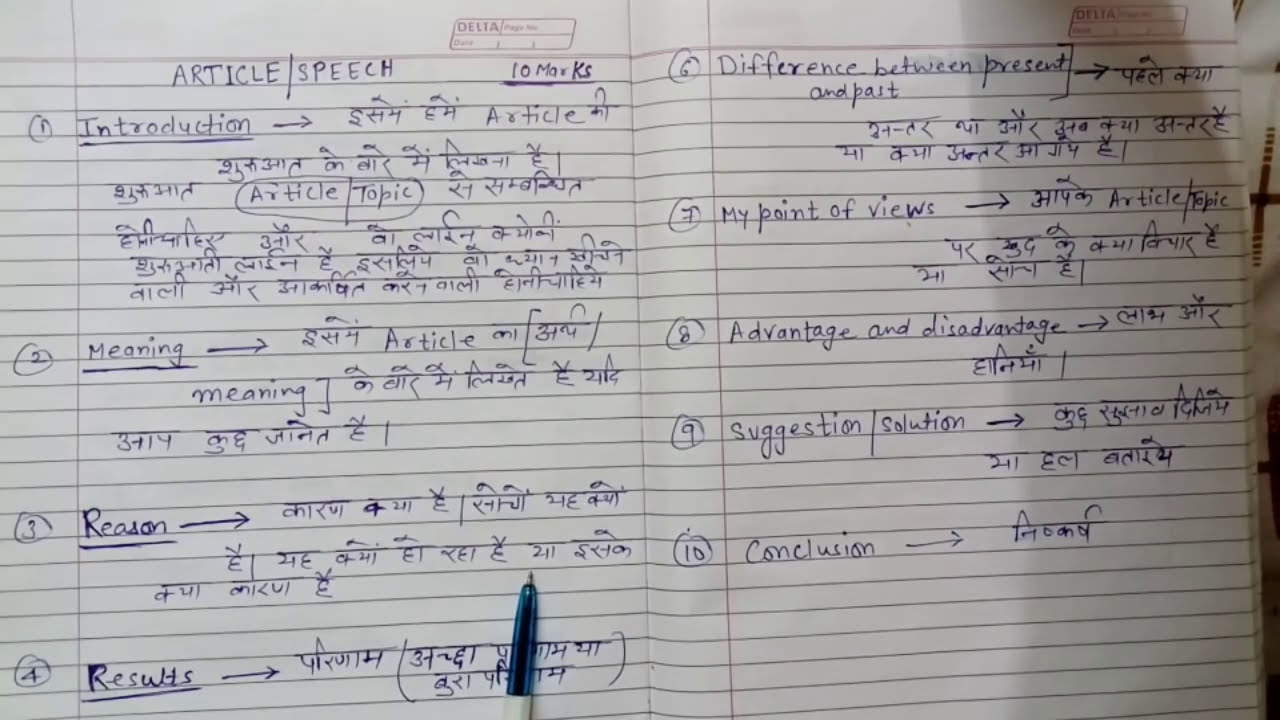 DELTA Page No.
Date
ARTICLE/SPEECH 10 Marks
① Introduction → इसमें हमें Article की
शुरुआत के बारे में लिखना है।
शुरुआत (Article/Topic) से सम्बन्धित
होनीचाहिए और वो लाईन क्योंकी
शुरुआती लाईन है इसलिये वो ध्यान खींचने
वाली और आकर्षित करने वाली होनीचाहिये
② Meaning → इसमें Article का [अर्थ/
meaning] के बारे में लिखते है यदि
आप कुछ जानते है।
③ Reason → कारण क्या है / सोचों यह क्यों
है। यह क्यों हो रहा है या इसके
क्या कारण है
④ Results → परिणाम (अच्छा या
बुरा
DELTA Page No.
Date
⑥ Difference between present → पहले क्या
and past
अन्तर था और अब क्या अन्तर है
या क्या अन्तर आ गये है।
⑦ My point of views → आपके Article/Topic
पर खुद के क्या विचार है
या सोच है।
⑧ Advantage and disadvantage → लाभ और
हानियाँ।
⑨ suggestion/solution → कुछ सुझाव दिजिये
या हल बताइये
⑩ Conclusion → निष्कर्ष